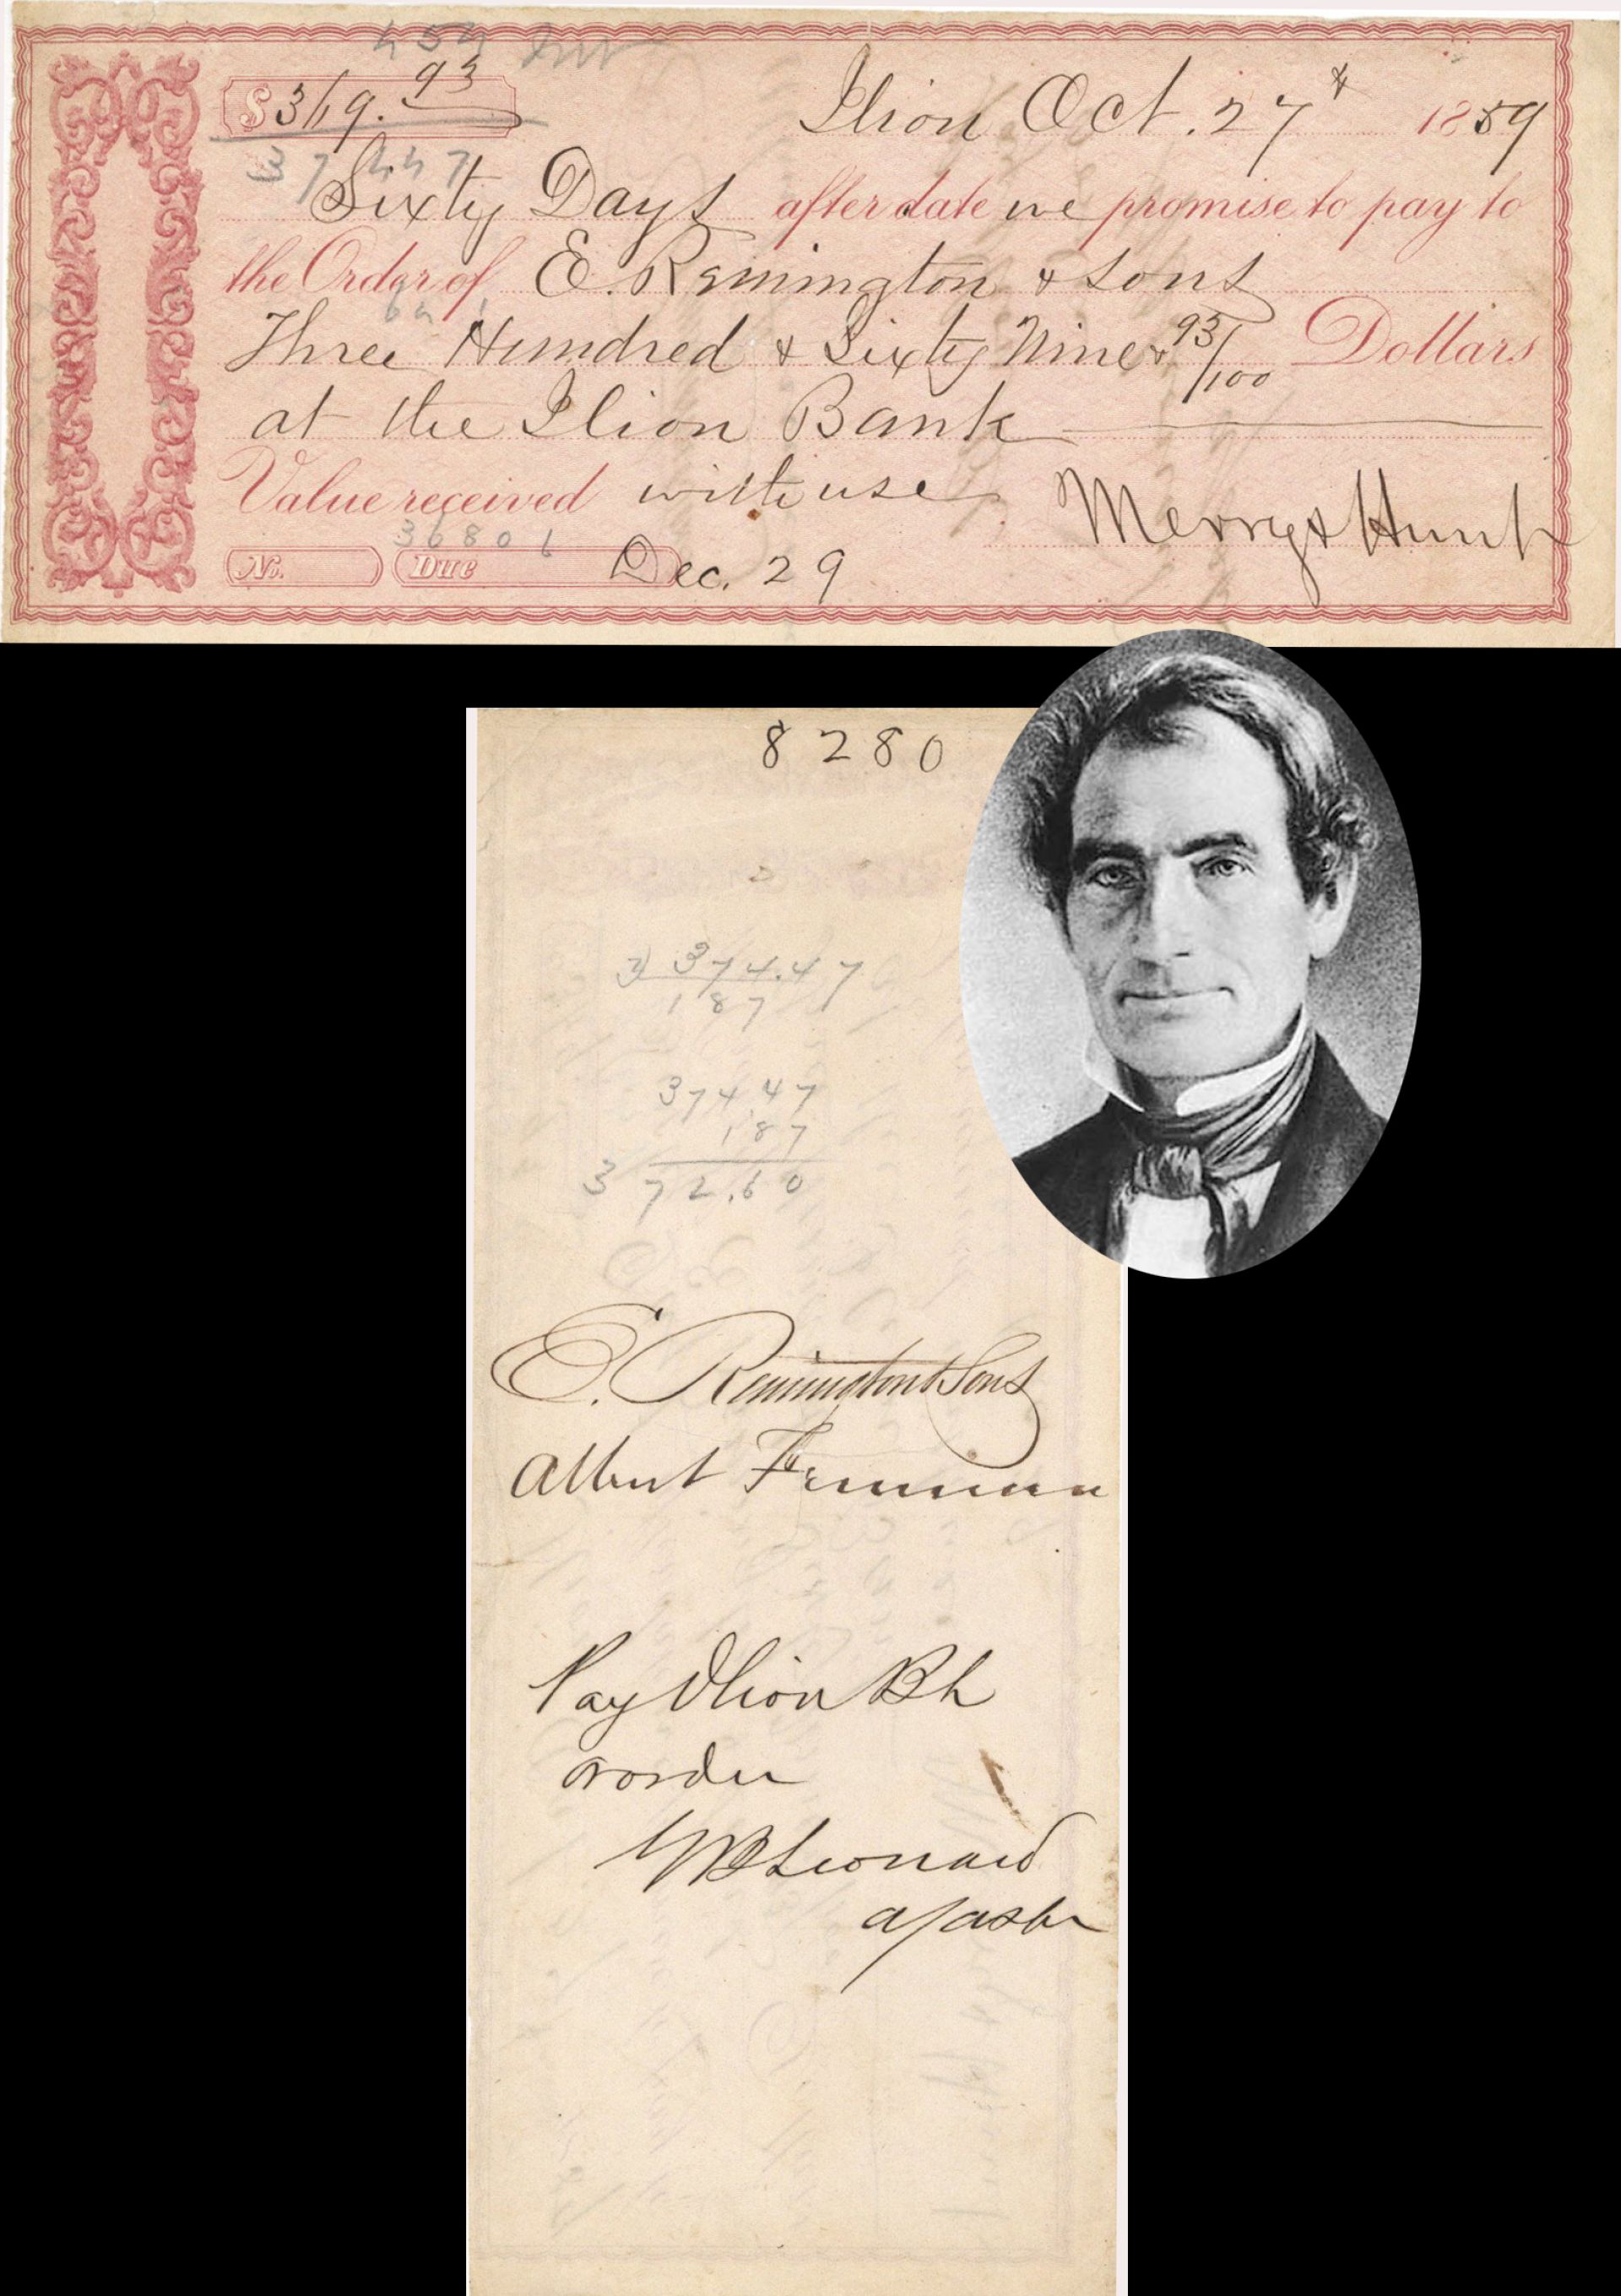 4 54 Int
$369.93
Ilion Oct. 27th 1859
37 447
Sixty Days after date we promise to pay to
the Order of E. Remington & Sons
Three Hundred & Sixty Nine & 93/100 Dollars
at the Ilion Bank
Value received with use
Merry & Hunt
36801
No. Due Dec. 29
8280
374.47
187
374.47
187
372.60
E. Remington & Sons
Albert Freeman
Pay Ilion Bk
or order
Leonard